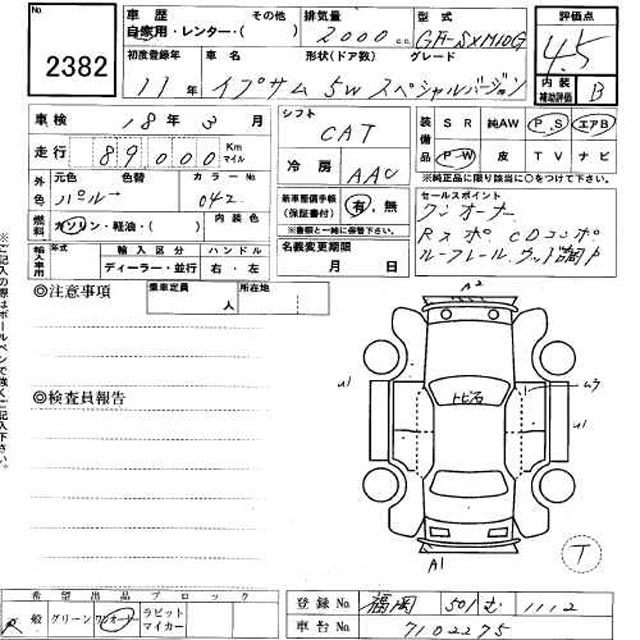 No.
2382
車歴
自家用・レンター・( )
その他
排気量
2000 c.c.
型式
GF-SXM10G
評価点
4.5
初度登録年
11年
車名
イプサム
形状(ドア数)
5W
グレード
スペシャルバージョン
内装補助評価
B
車検
18年 3月
走行
89000 Km マイル
シフト
CAT
冷房
AAC
装備品
SR 純AW P.S エアB
P.W 皮 TV ナビ
※純正品に限り該当に○をつけて下さい。
外色
元色
色替
カラーNo.
パール
042
燃料
ガソリン・軽油・( )
内装色
輸入車用
年式
輸入区分
ハンドル
ディーラー・並行
右・左
新車整備手帳(保証書付)
有.無
※書類と一緒に保管下さい。
名義変更期限
月 日
セールスポイント
ワンオーナー
Rスポ. CDコンポ.
ルーフレール.
◎注意事項
乗車定員
人
所在地
◎検査員報告
※ご記入の際はボールペンで強くご記入下さい。
A2
U1
トビ石
U1
A1
T
希望出品ブロック
般 グリーン ワンオーナー ラビットマイカー
登録No.
福岡 501 む 1112
車台No.
7102275